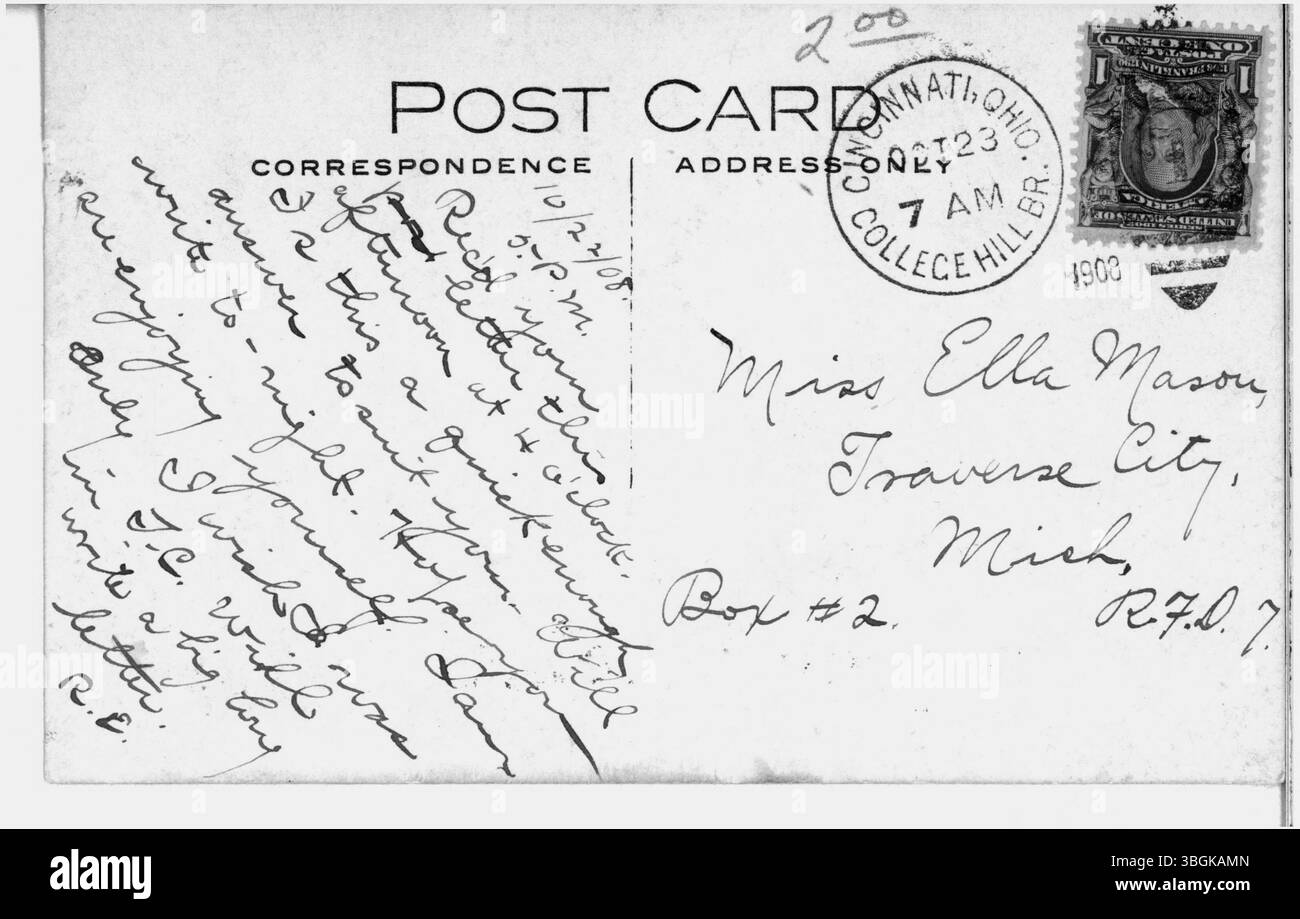 2 00
POST CARD
CORRESPONDENCE
ADDRESS ONLY
CINCINNATI, OHIO.
OCT 23
7 AM
COLLEGE HILL BR.
1908
UNITED STATES OF AMERICA
1 FRANKLIN 1
POSTAGE
ONE CENT
10/22/08.
5-P.M.
Rec'd your
letter this
afternoon at 4 o'clock.
Is this a quick enough
answer to suit you. Will
write to-night. Hope you
are enjoying yourself. I am
Only I wish I was
in T.C. Will
write a big long
letter.
R.E.
Miss Ella Mason,
Traverse City,
Mich,
Box #2. R.F.D. 7.
alamy
alamy
Image ID: 3BGKAMN
www.alamy.com